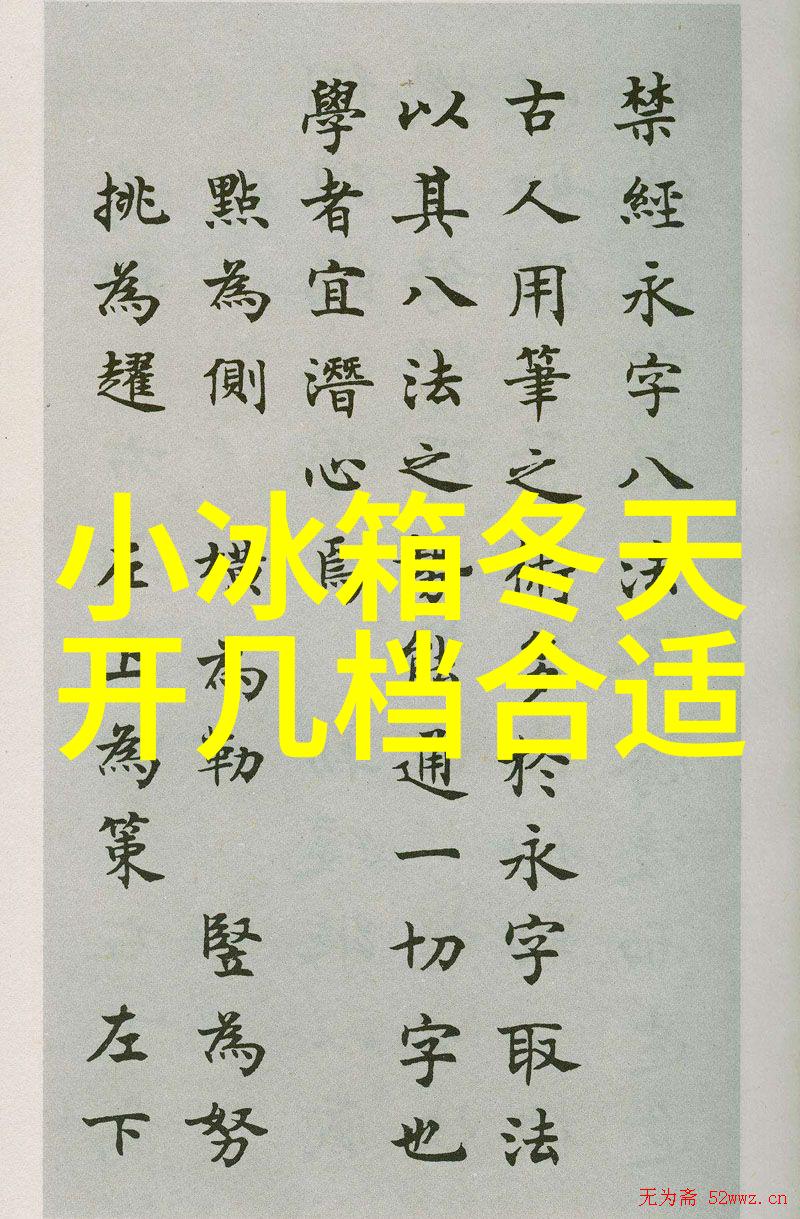 禁經永字八法
古人用筆之術多於永字取法
以其八法之勢能通一切字也
學者宜潛心焉
點為側 橫為勒 豎為努
挑為趯 左上為策 左下
小冰箱冬天
开几档合适
无为斋 52wwz.cn